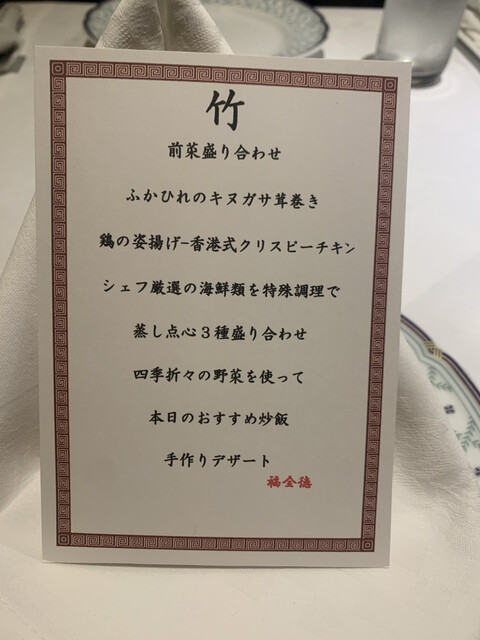 竹
前菜盛り合わせ
ふかひれのキヌガサ茸巻き
鶏の姿揚げ-香港式クリスピーチキン
シェフ厳選の海鮮類を特殊調理で
蒸し点心３種盛り合わせ
四季折々の野菜を使って
本日のおすすめ炒飯
手作りデザート
福全徳